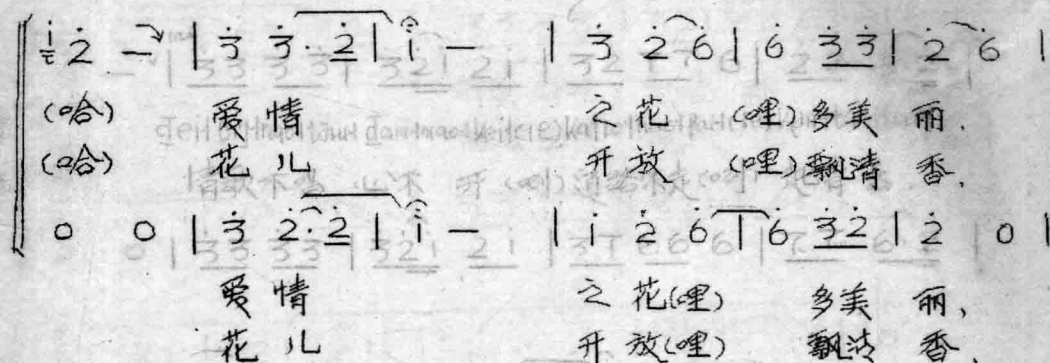 i 2̇ — | 3̇ 3̇· 2̇ | i — | 3̇ 2̇ 6 | 6 3̇ 3̇ | 2̇ 6 |
(哈) 爱 情 之 花 (哩) 多美 丽.
(哈) 花 儿 开 放 (哩) 飘清 香,
0 0 | 3̇ 2̇· 2̇ | i — | i 2̇ 6 | 6 3̇ 2̇ | 2̇ 0 |
爱 情 之 花(哩) 多美 丽,
花 儿 开 放(哩) 飘清 香,